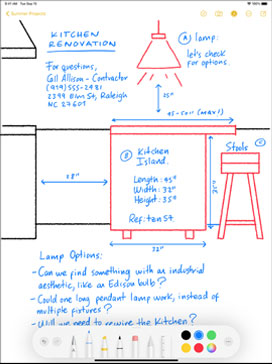 9:41 AM Tue Sep 15
Summer Projects
KITCHEN
RENOVATION
A lamp:
let's check
for options.
For questions,
Gil Allison - Contractor
(919) 555-2481
2399 Elm St, Raleigh
NC 27601
25"
45-50" (max!)
Stools C
B Kitchen
Island.
Length: 45"
Width: 32"
Height: 35"
Ref: ten St
28"
32"
Lamp Options:
- Can we find something with an industrial
aesthetic, like an Edison bulb?
- Could one long pendant lamp work, instead of
multiple fixtures?
- Will we need to rewire the Kitchen?